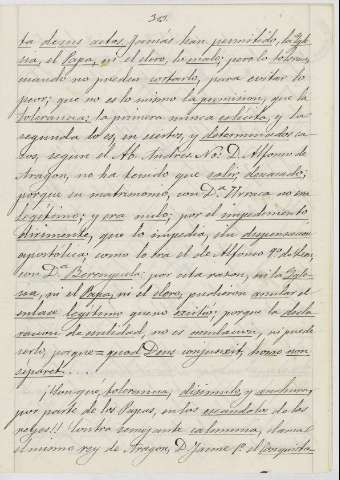 303.
ta de sus actos. Jamás han permitido, la Igle-
sia, el Papa, ni el clero, lo malo; pero lo toleran,
cuando no pueden evitarlo, para evitar lo
peor; que no es lo mismo la permision, que la
tolerancia: la primera nunca es lícita, y la
segunda lo es, en ciertos, y determinados ca-
sos, segun el Ab. Andres No: D. Alfonso de
Aragon, no ha tenido que salir, deseando;
porque su matrimonio, con D.ª Urraca no era
legítimo; y era nulo; por el impedimento
dirimente, que lo impedia, sin dispensacion
apostólica; como lo era el de Alfonso 9.º de Leon,
con D.ª Berenguela: por esta razon, ni la Igle-
sia, ni el Papa, ni el clero, pudieron anular el
enlace legítimo que no existia; porque la decla-
racion de nulidad, no es anulacion, ni puede
serlo, porque = quod Deus conjunxit, homo non
separet....!
¡Con qué, tolerancia, disimulo, y
por parte de los Papas, en los escándalos de los
reyes!! Contra semejante calumnia, clama
el mismo rey de Aragon, D. Jaime 1.º el Conquista-